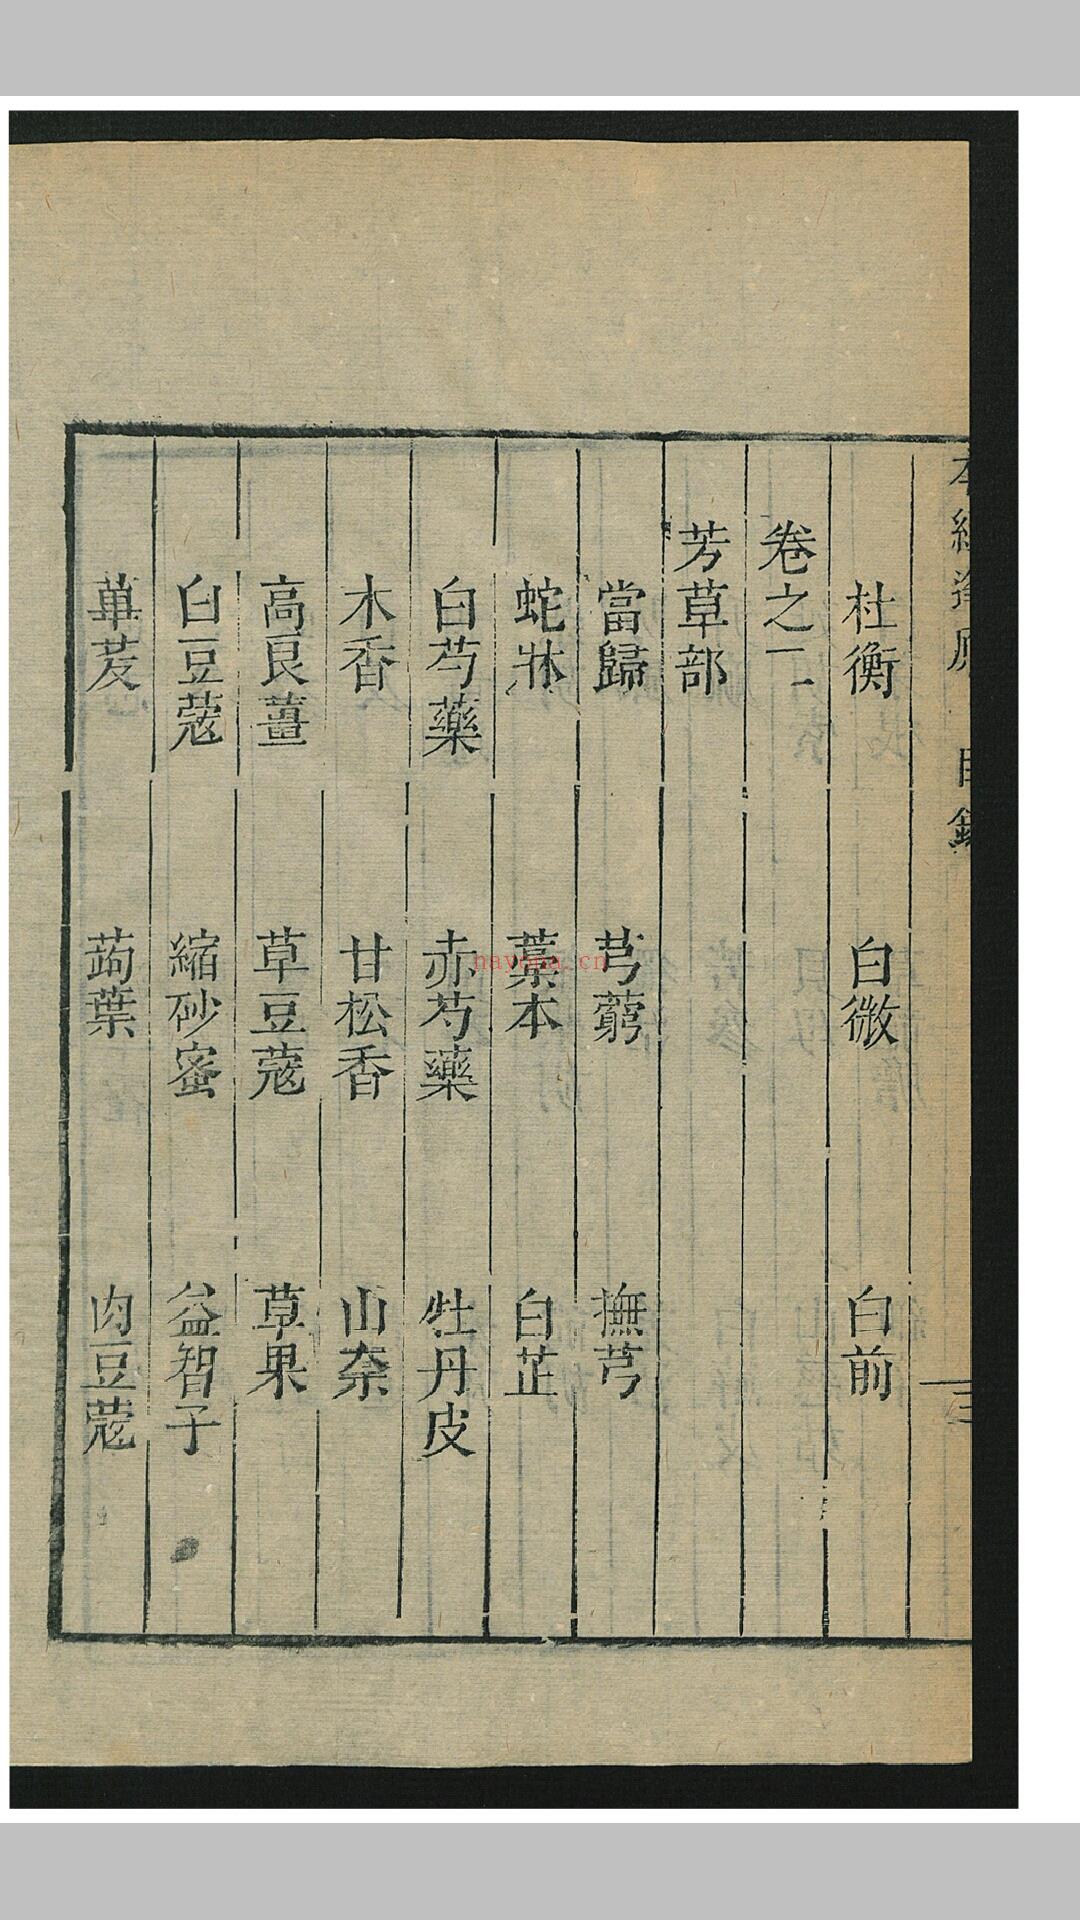 本經逢原 目錄 三
杜衡 白微 白前
卷之二
芳草部
當歸 芎藭 撫芎
蛇牀 藁本 白芷
白芍藥 赤芍藥 牡丹皮
木香 甘松香 山柰
高良薑 草豆蔻 草果
白豆蔻 縮砂蜜 益智子
蓽茇 蒟葉 肉豆蔻
nayona.cn